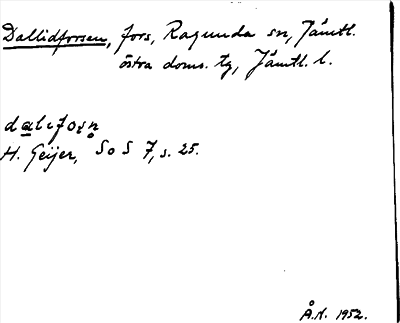 Dallidforsen, fors, Ragunda sn, Jämtl.
östra doms. tg, Jämtl. l.
dalifosn
H. Geijer, SoS 7, s. 25.
Å.N. 1952.